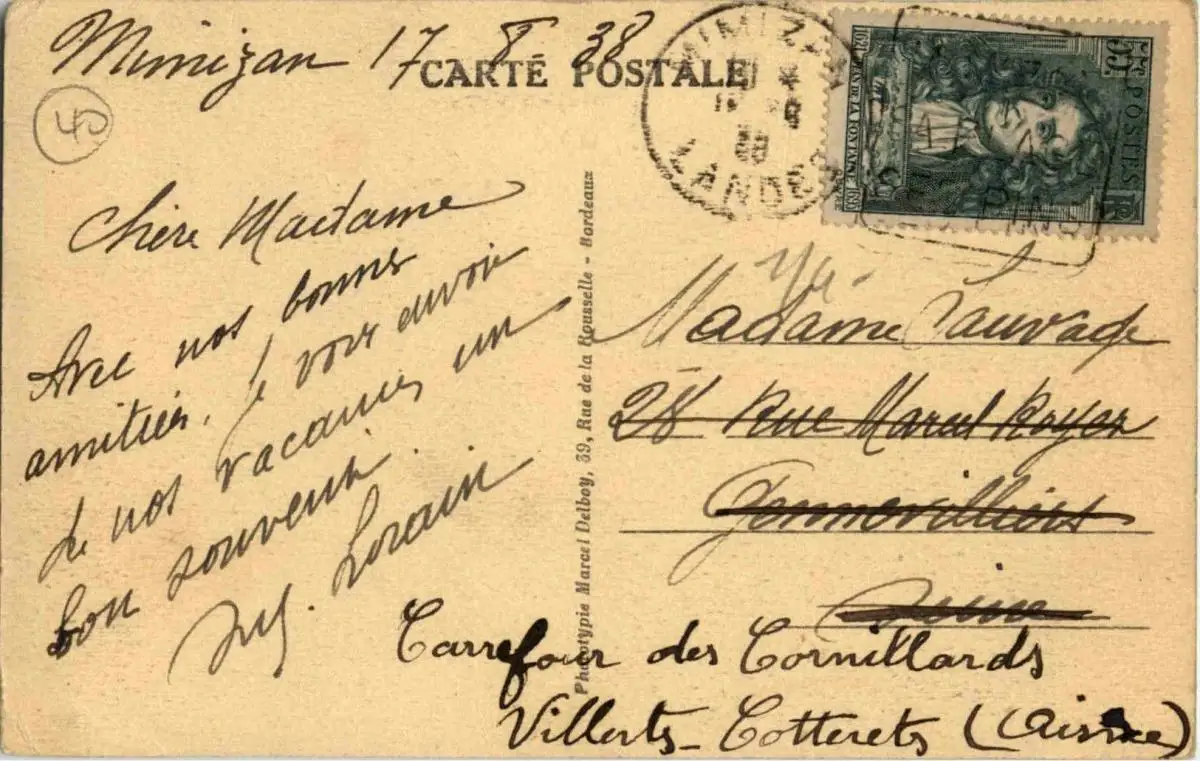 Mimizan 17 8 38
CARTE POSTALE
40
MIMIZAN
LANDES
POSTES
55c
JEAN DE LA FONTAINE
RF
Chère Madame
Avec nos bonnes
amitiés. Je vous envoie
de nos vacances un
bon souvenir.
Lorain
Phototypie Marcel Delboy, 39, Rue de la Rousselle - Bordeaux
Madame Sauvage
28 Rue Marcel Royer
Gennevilliers
Seine
Carrefour des Cornillards
Villerts-Cotterets (Aisne)